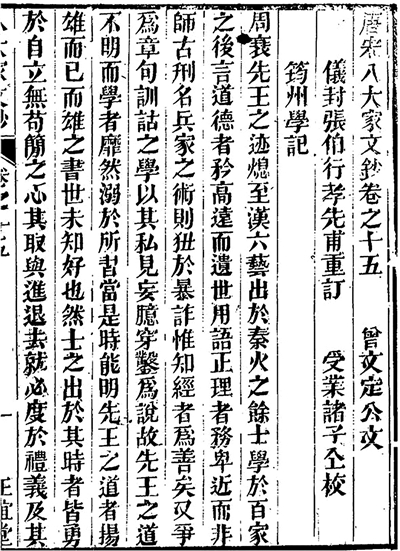 唐宋八大家文鈔卷之十五　曾文定公文
儀封張伯行孝先甫重訂　受業諸子仝校
筠州學記
周衰先王之迹熄至漢六藝出於秦火之餘士學於百家
之後言道德者矜高遠而遺世用語正理者務卑近而非
師古刑名兵家之術則狃於暴詐惟知經者為善矣又爭
為章句訓詁之學以其私見妄臆穿鑿為說故先王之道
不明而學者靡然溺於所習當是時能明先王之道者揚
雄而已而雄之書世未知好也然士之出於其時者皆勇
於自立無苟簡之心其取與進退去就必度於禮義及其
八大家文鈔　卷之十五　一　正誼堂